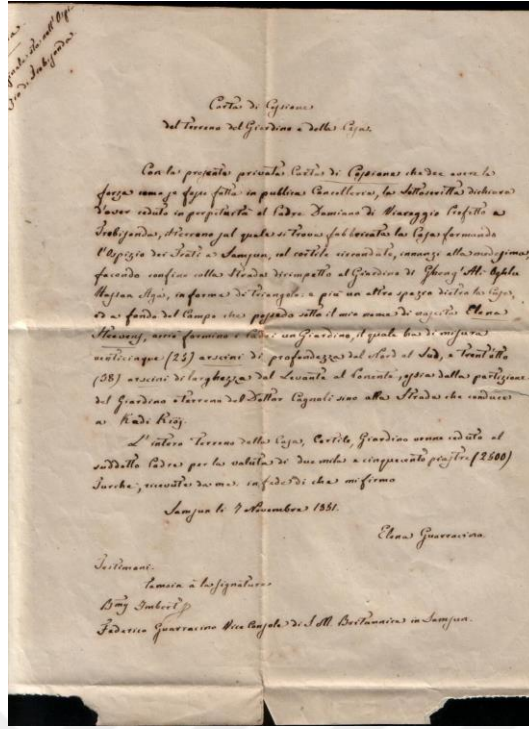 Carta di Cessione
del Terreno del Giardino e della Casa.
Con la presente privata Carta di Cessione che dee avere la
forza come se fosse fatta in publica Cancelleria, la Sottoscritta dichiara
d'aver ceduto in perpetuità al Padre Damiano di Viareggio Prefetto a
Trebisonda, il terreno sul quale si trova fabbricata la Casa formando
l'Ospizio dei Frati a Samsun, col cortile circondato, innanzi alla medesima,
facendo confine colla Strada dirimpetto al Giardino di
Hassan Aga, in forma di triangolo. e più un altro spazio dietro la Casa,
ed a fondo del Campo che possedo sotto il mio nome di nascita Elena
Steevens, acciò formino i Padri un Giardino, il quale ha di misura
venticinque (25) arscini di profondezza dal Nord al Sud, e Trent'otto
(38) arscini di larghezza dal Levante al Ponente, ossia dalla partizione
del Giardino e terreno del Dottor Cagnoli sino alla Strada che conduce
a Kadi Kioj.
L'intero Terreno della Casa, Cortile, Giardino venne ceduto al
suddetto Padre per la valuta di due mila e cinquecento piastre (2500)
Turche, ricevute da me. in fede di che mi firmo
Samsun li 7 Novembre 1881.
Elena Guarracino
Testimoni.
à la signature
Federico Guarracino Vice Console di S. M. Britannica in Samsun.